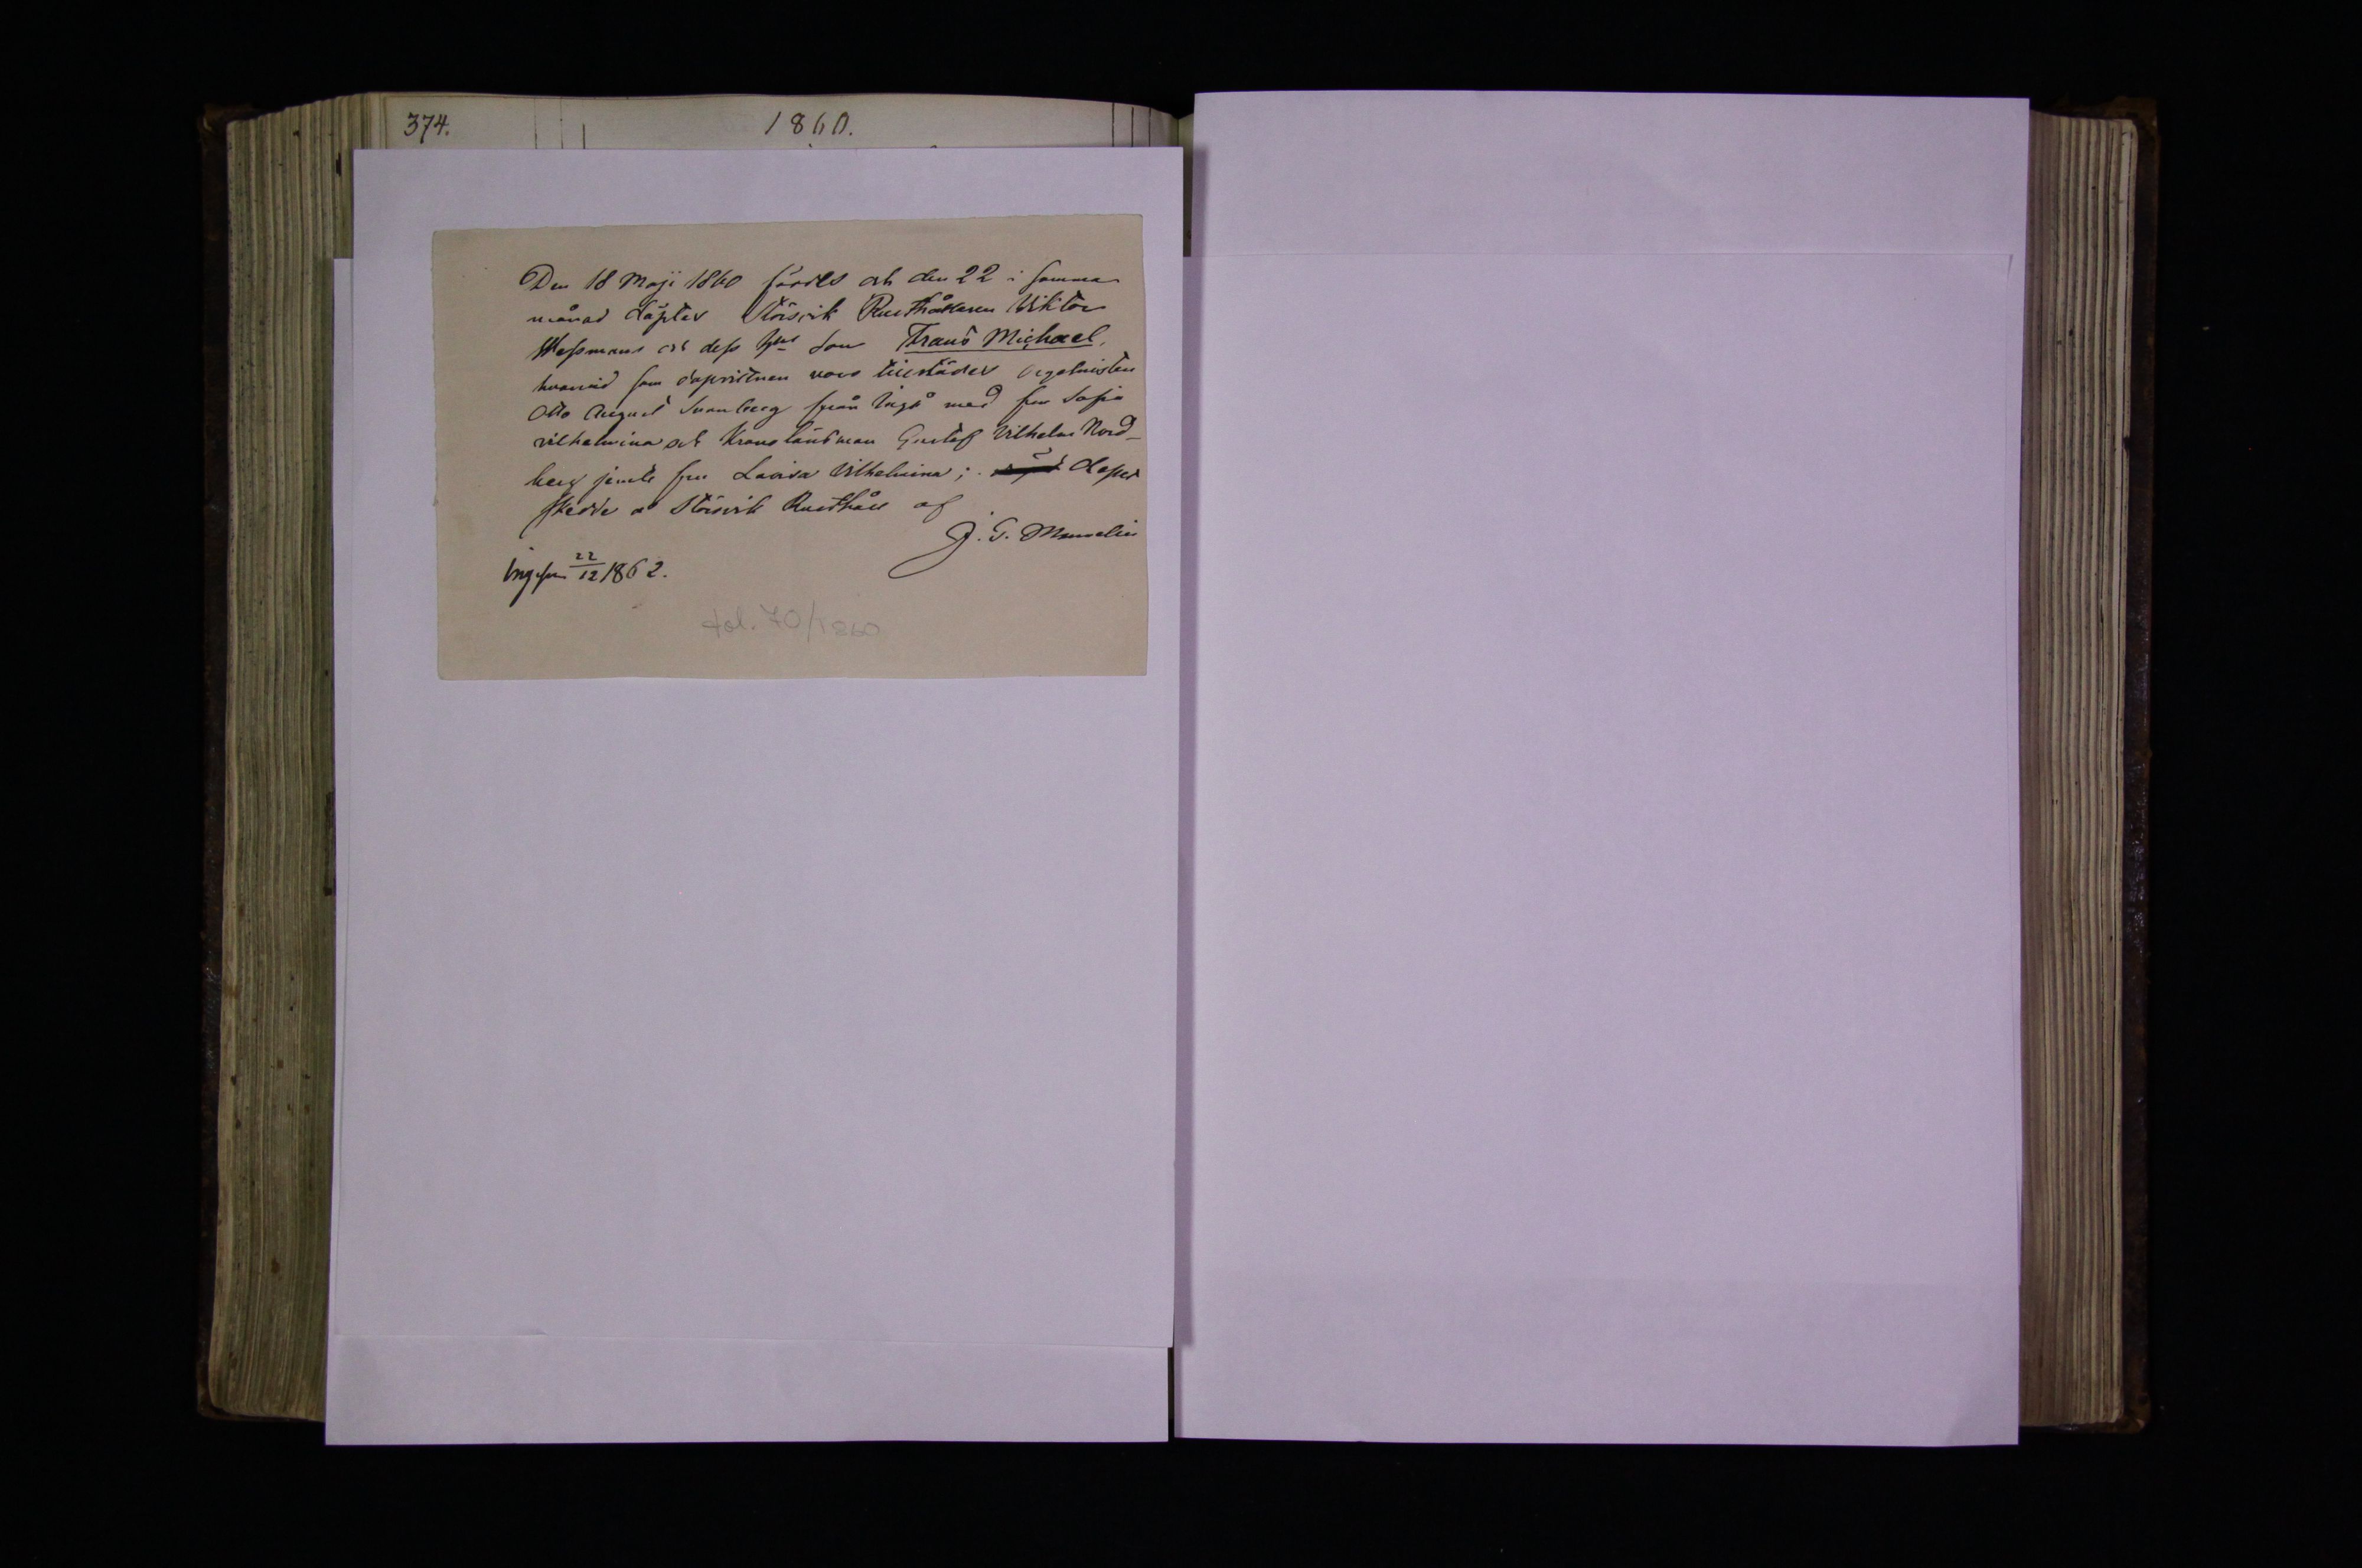 374.
1860.
Den 18 Maji 1860 föddes och den 22 i samma
månad döptes Störsvik Rusthållaren Viktor
Wessmans och dess hus son Frans Michael,
hvarvid som dopvittnen voro tillstädes Orgelnisten
Otto August Svanberg från Ingå med fru Sofia
Vilhelmina och Kronolänsman Gustaf Vilhelm Nord-
berg jemte fru Lovisa Vilhelmina; Dopet
skedde å Störsvik Rusthåll af
J. G.
22
12 1862.
fol. 70/1860